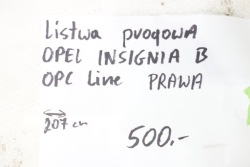 Listwa progowa
OPEL INSIGNIA B
OPC Line PRAWA
207 cm
500.-